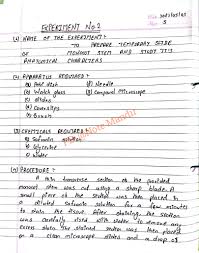 EXPERIMENT No 2
(1) NAME OF THE EXPERIMENT:-
TO PREPARE TEMPORARY SLIDE
OF MONOCOT STEM AND STUDY ITS
ANATOMICAL CHARACTERS
(2) APPARATUS REQUIRED:-
(a) Petri dish (f) Needle
(b) Watch glass (g) Compound Microscope
(c) Slides
(d) Coverslips
(e) Brush
(3) CHEMICALS REQUIRED:-
Safranin solution
Glycerine
Water
(4) PROCEDURE:-
A thin transverse section of the provided
monocot stem was cut using a sharp blade. A
small piece of the section was then placed in
a diluted safranin solution for a few minutes
to stain the tissue. After staining, the section
was carefully washed with water to remove any
excess stain. The stained section was then placed
on a clean microscope slide and a drop of